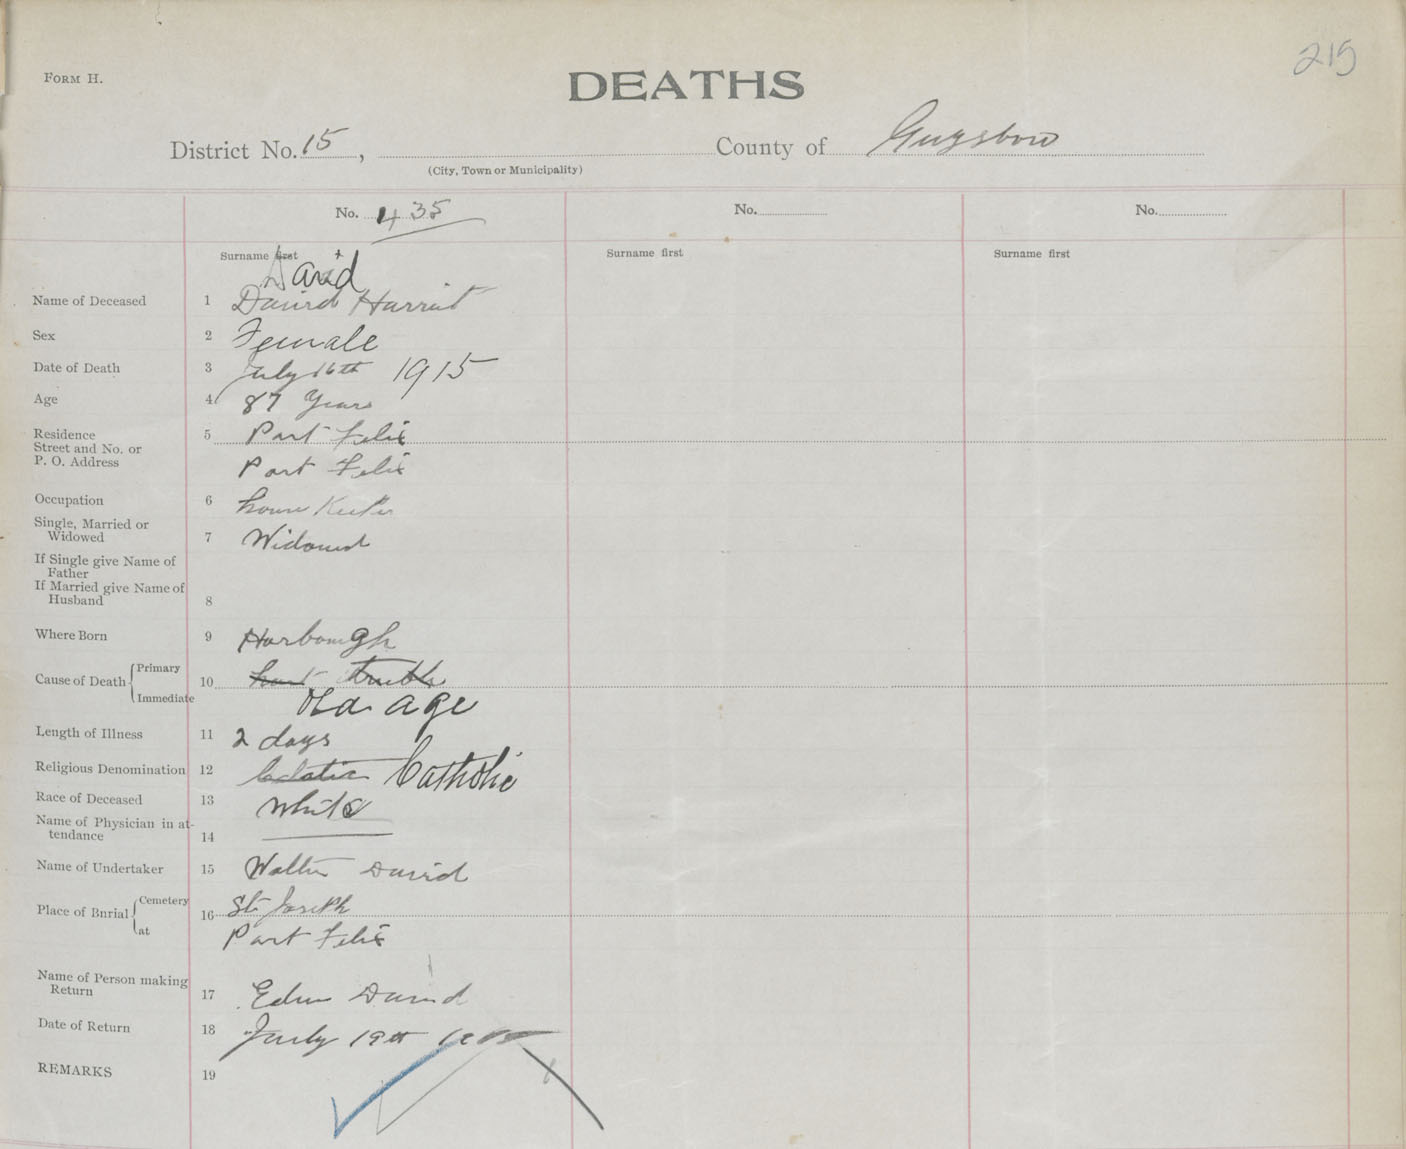 215
FORM H.
DEATHS
District No. 15, County of Guysboro
(City, Town or Municipality)
No. 435 No. No.
Surname first Surname first Surname first
David
Name of Deceased 1 David Harriet
Sex 2 Female
Date of Death 3 July 16th 1915
Age 4 87 Years
Residence 5 Port Felix
Street and No. or
P. O. Address Port Felix
Occupation 6 house Keeper
Single, Married or
Widowed 7 Widowed
If Single give Name of
Father
If Married give Name of
Husband 8
Where Born 9 Harbough
Cause of Death Primary 10 heart trouble
Immediate Old age
Length of Illness 11 2 days
Religious Denomination 12 Catholic
Race of Deceased 13 White
Name of Physician in at-
tendance 14
Name of Undertaker 15 Walter David
Place of Bnrial Cemetery 16 St Joseph
at Port Felix
Name of Person making
Return 17 David
Date of Return 18 July 19th
REMARKS 19